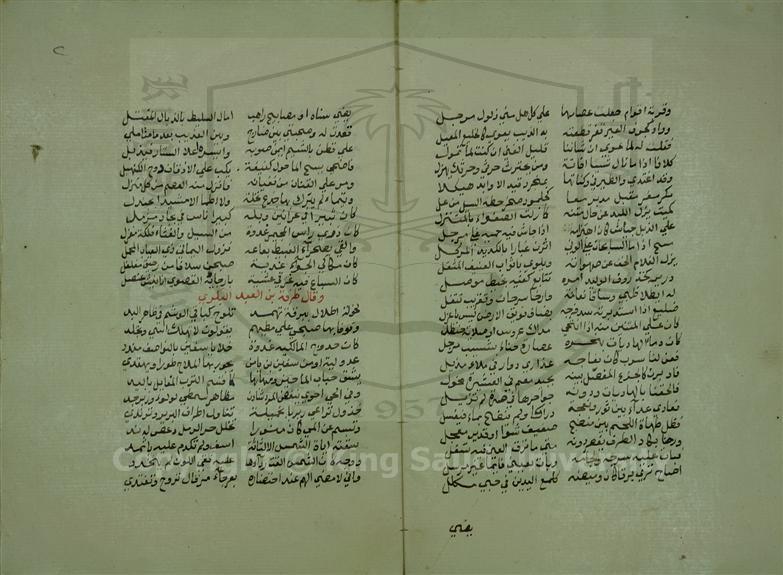 وقربة اقوام جعلت عصامها على كاهل مني ذلول مرحل
وواد كجوف العير قفر قطعته به الذيب يعوي كالخليع المعيل
فقلت له لما عوى ان شاننا قليل الغنى ان كنت لما تمول
كلانا اذا ما نال شيئا افاته ومن يحترث حرثي وحرثك يهزل
وقد اغتدي والطير في وكناتها بمنجرد قيد الاوابد هيكلا
مكر مفر مقبل مدبر معا كجلمود صخر حطه السيل من عل
كميت يزل اللبد عن حال متنه كما زلت الصفواء بالمتنزل
على الذبل جياش كان اهتزامه اذا جاش فيه حميه غلي مرجل
مسح اذا ما السابحات على الونى اثرن غبارا بالكديد المركل
يزل الغلام الخف عن صهواته ويلوي باثواب العنيف المثقل
درير كخذروف الوليد امره تتابع كفيه بخيط موصل
له ايطلا ظبي وساقا نعامة وارخا سرحان وتقريب تتفل
ضليع اذا استدبرته سد فرجه بضاف فويق الارض ليس باعزل
كان على المتنين منه اذا انتحى مداك عروس او صلاية حنظل
كان دماء الهاديات بنحره عصارة حناء بشيب مرجل
فعن لنا سرب كان نعاجه عذارى دوار في ملاء مذيل
فادبرن كالجزع المفصل بينه بجيد معم في العشيرة مخول
فالحقنا بالهاديات ودونه جواحرها في صرة لم تزيل
فعادى عداء بين ثور ونعجة دراكا ولم ينضح بماء فيغسل
فظل طهاة اللحم من بين منضج صفيف شواء او قدير معجل
ورحنا يكاد الطرف يقصر دونه متى ما ترق العين فيه تسفل
فبات عليه سرجه ولجامه وبات بعيني قائما غير مرسل
اصاح ترى برقا كان وميضه كلمع اليدين في حبي مكلل
يضي
يضي سناه او مصابيح راهب امال السليط بالذبال المفتل
قعدت له وصحبتي بين ضارج وبين العذيب بعد ما متاملي
على قطن بالشيم ايمن صوبه وايسره اعلا الستار فيذبل
فاضحى يسح الماء حول كتيفة يكب على الاذقان دوح الكنهبل
ومر على القنان من نفيانه فانزل منه العصم من كل منزل
وتيماء لم يترك بها جذع نخلة ولا اطما الا مشيدا بجندل
كان ثبيرا في عرانين وبله كبير اناس في بجاد مزمل
كان ذرى راس المجيمر غدوة من السيل والغثاء فلكة مغزل
والقى بصحراء الغبيط بعاعه نزول اليماني ذي العياب المحمل
كان مكاكي الجواء غدية صبحن سلافا من رحيق مفلفل
كان السباع فيه غرقى عشية بارجائه القصوى انابيش عنصل
وقال طرفة بن العبد البكري
لخولة اطلال ببرقة ثهمد تلوح كباقي الوشم في ظاهر اليد
وقوفا بها صحبي على مطيهم يقولون لا تهلك اسى وتجلد
كان حدوج المالكية غدوة خلايا سفين بالنواصف من دد
عدولية او من سفين بن يامن يجور بها الملاح طورا ويهتدي
يشق حباب الماء حيزومها بها كما قسم الترب المفايل باليد
وفي الحي احوى ينفض المرد شادن مظاهر سمطي لولو وزبرجد
خذول تراعي ربربا بخميلة تناول اطراف البرير وترتدي
وتبسم عن المى كان منورا تخلل حر الرمل دعص له ند
سقته اياة الشمس الا لثاته اسف ولم تكدم عليه باثمد
ووجه كان الشمس القت رداءها عليه نقي اللون لم يتخدد
واني لامضي الهم عند احتضاره بعوجاء مرقال تروح وتغتدي
Copyright © King Saud University
1957